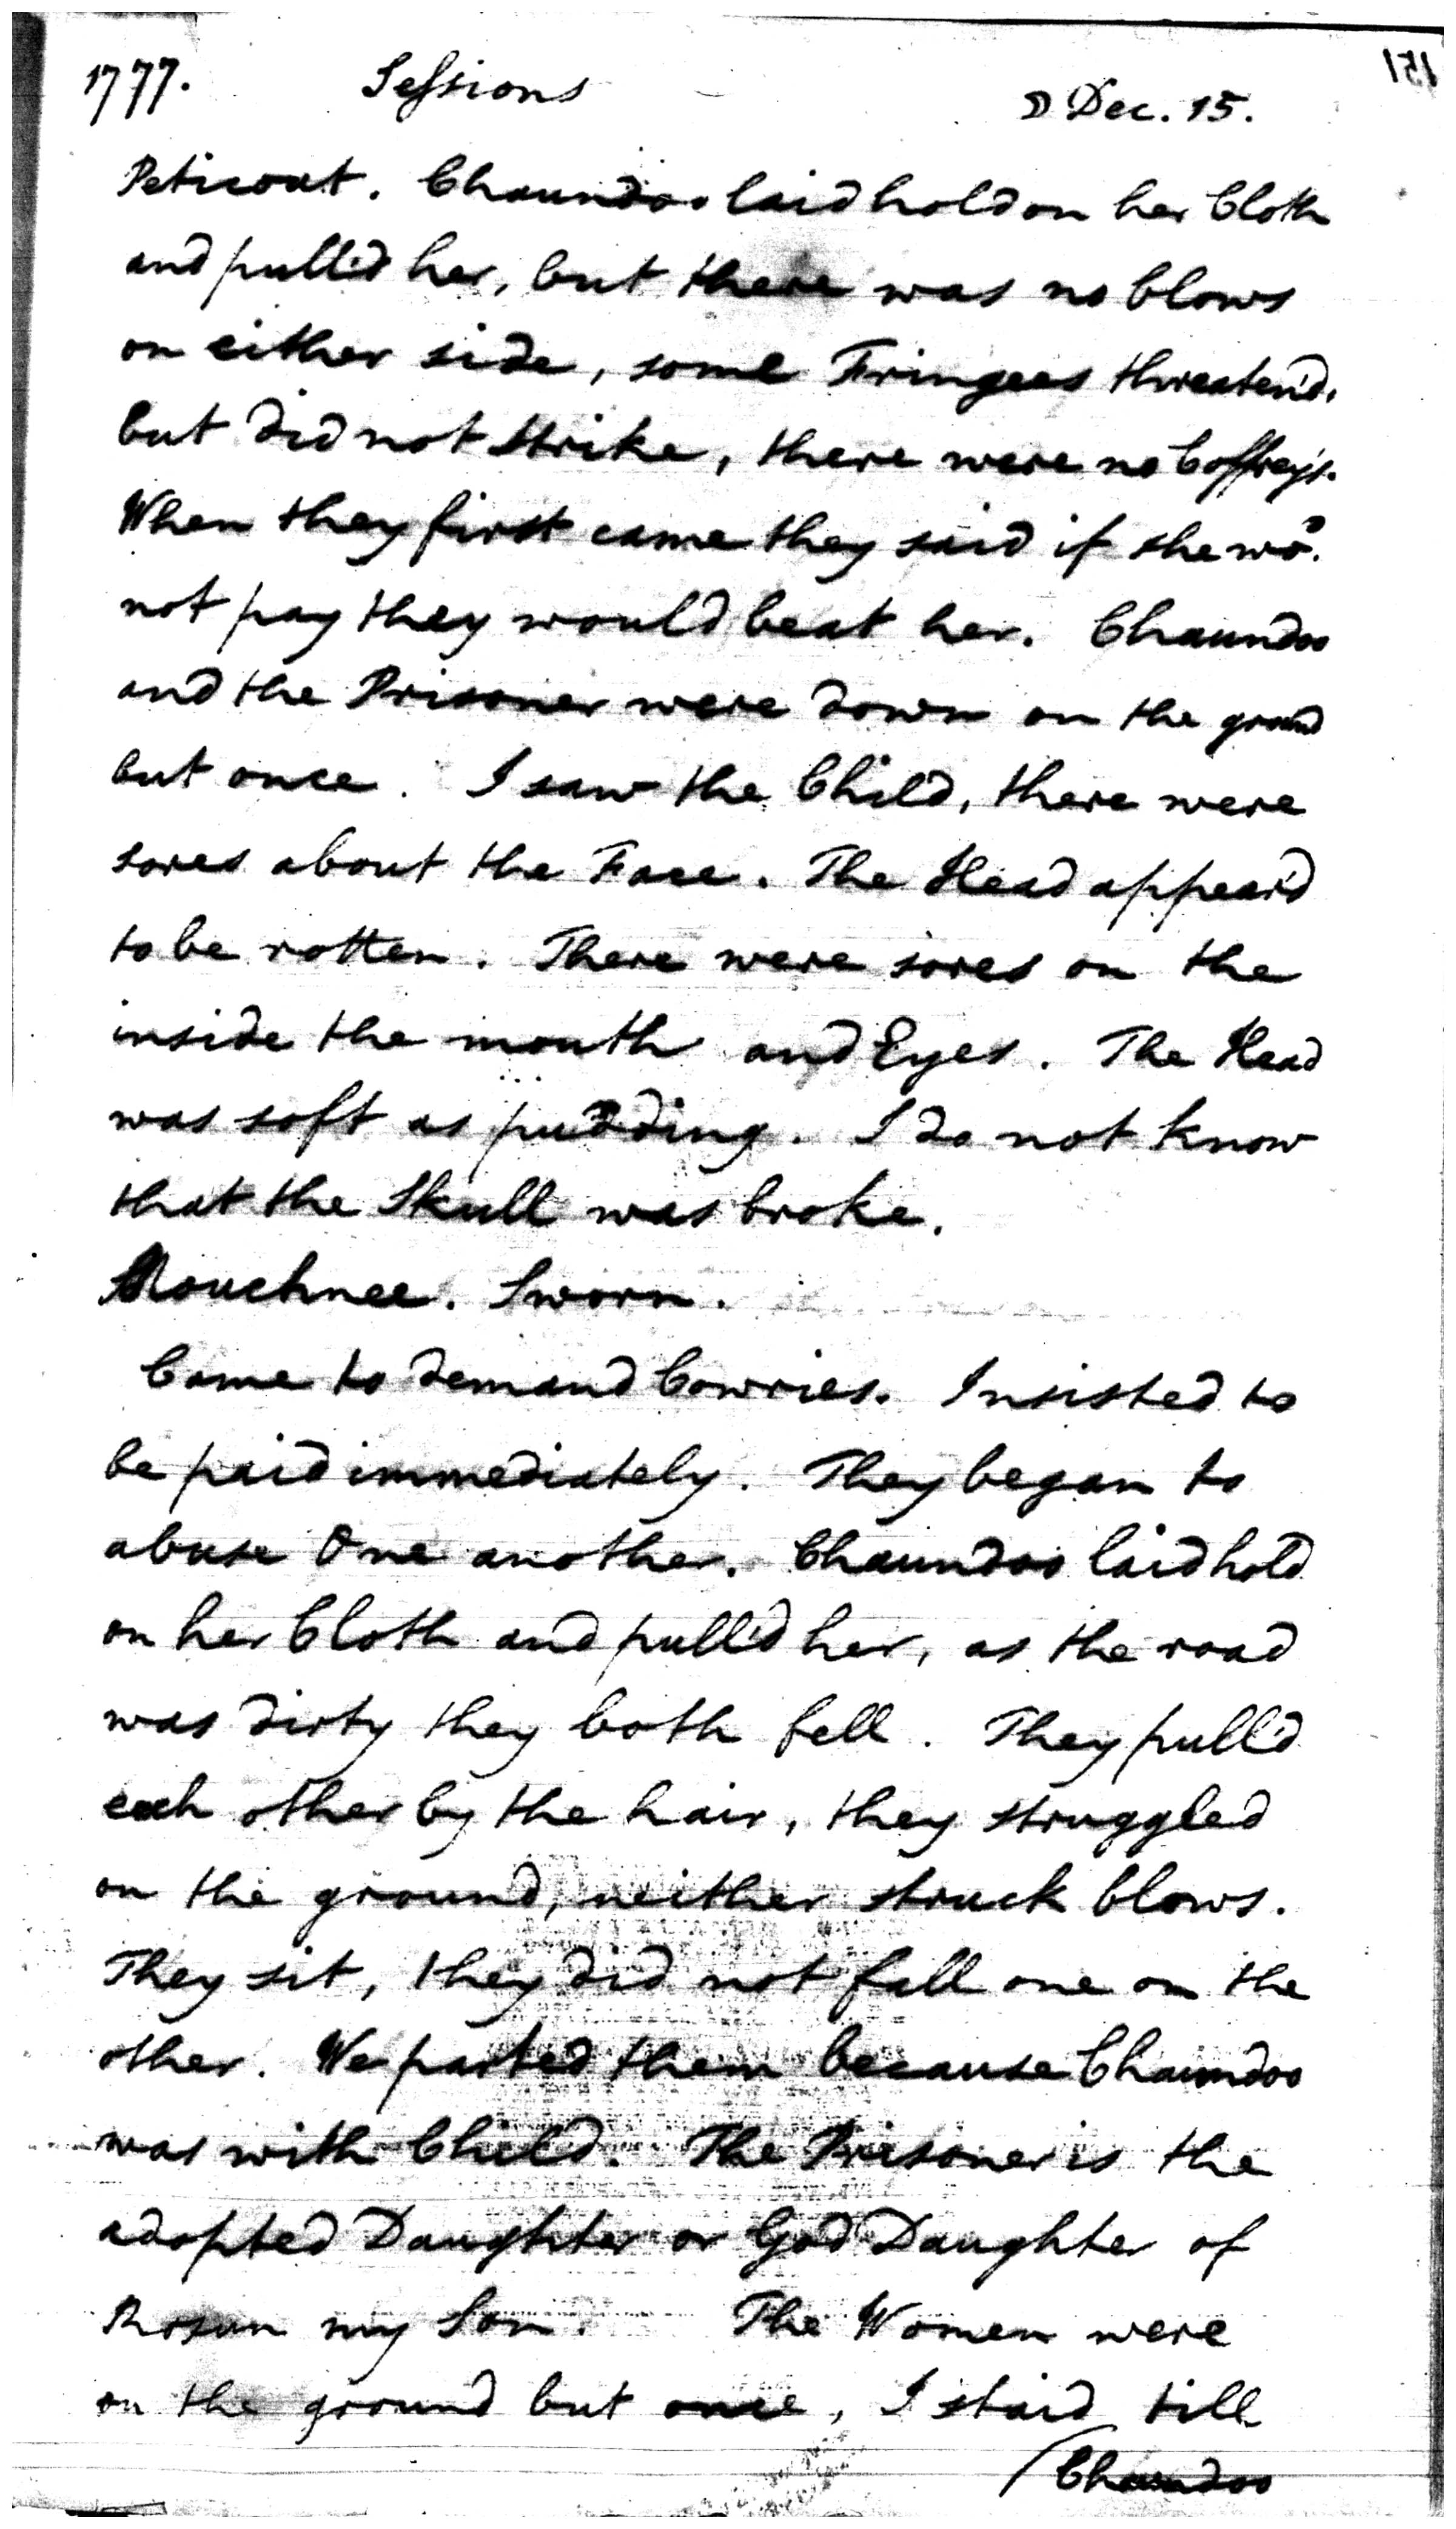 1777. Sessions ☽ Dec. 15.
Peticoat. Chaundoo laid hold on her Cloth
and pull'd her, but there was no blows
on either side, some Fringees threaten'd,
but did not strike, there were no Coffrey's.
When they first came they said if she wo.^d
not pay they would beat her. Chaundoo
and the Prisoner were down on the ground
but once. I saw the Child, there were
sores about the Face. The Head appear'd
to be rotten. There were sores on the
inside the mouth and Eyes. The Head
was soft as pudding. I do not know
that the Skull was broke.
Mouchnee. Sworn.
Came to demand Cowries. Insisted to
be paid immediately. They began to
abuse One another. Chaundoo laid hold
on her Cloth and pull'd her, as the road
was dirty they both fell. They pull'd
each other by the hair, they struggled
on the ground, neither struck blows.
They sit, they did not fall one on the
other. We parted them because Chaundoo
was with Child. The Prisoner is the
adopted Daughter or God Daughter of
Rosan my Son. The Women were
on the ground but once, I staid till
Chaundoo